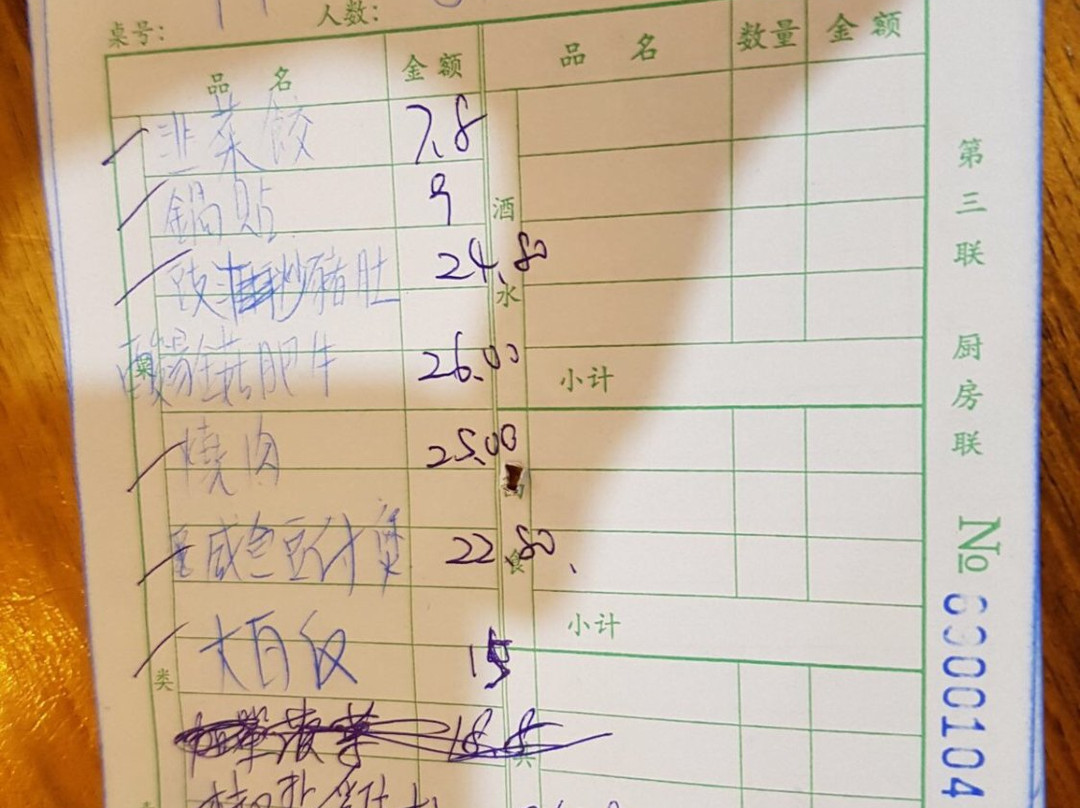 桌号: 人数:
品名 金额 品名 数量 金额
韭菜饺 7.8
鍋貼 9
豉 炒豬肚 24.80
酸湯金菇肥牛 26.00
燒肉 25.00
咸鱼豆付煲 22.80
大白飯 15
18.8
酒水
小计
食
小计
类
菜
第三联 厨房联
№ 6900104